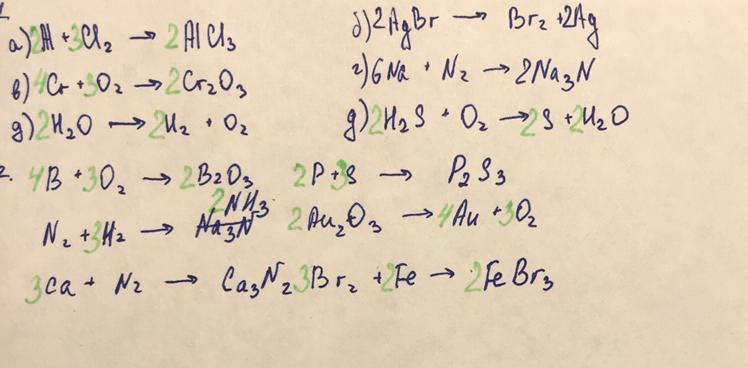 1.
а) 2Al + 3Cl₂ → 2AlCl₃ б) 2AgBr → Br₂ + 2Ag
в) 4Cr + 3O₂ → 2Cr₂O₃ г) 6Na + N₂ → 2Na₃N
д) 2H₂O → 2H₂ + O₂ д) 2H₂S + O₂ → 2S + 2H₂O
2. 4B + 3O₂ → 2B₂O₃ 2P + 3S → P₂S₃
N₂ + 3H₂ → 2NH₃ 2Au₂O₃ → 4Au + 3O₂
3Ca + N₂ → Ca₃N₂ 3Br₂ + 2Fe → 2FeBr₃